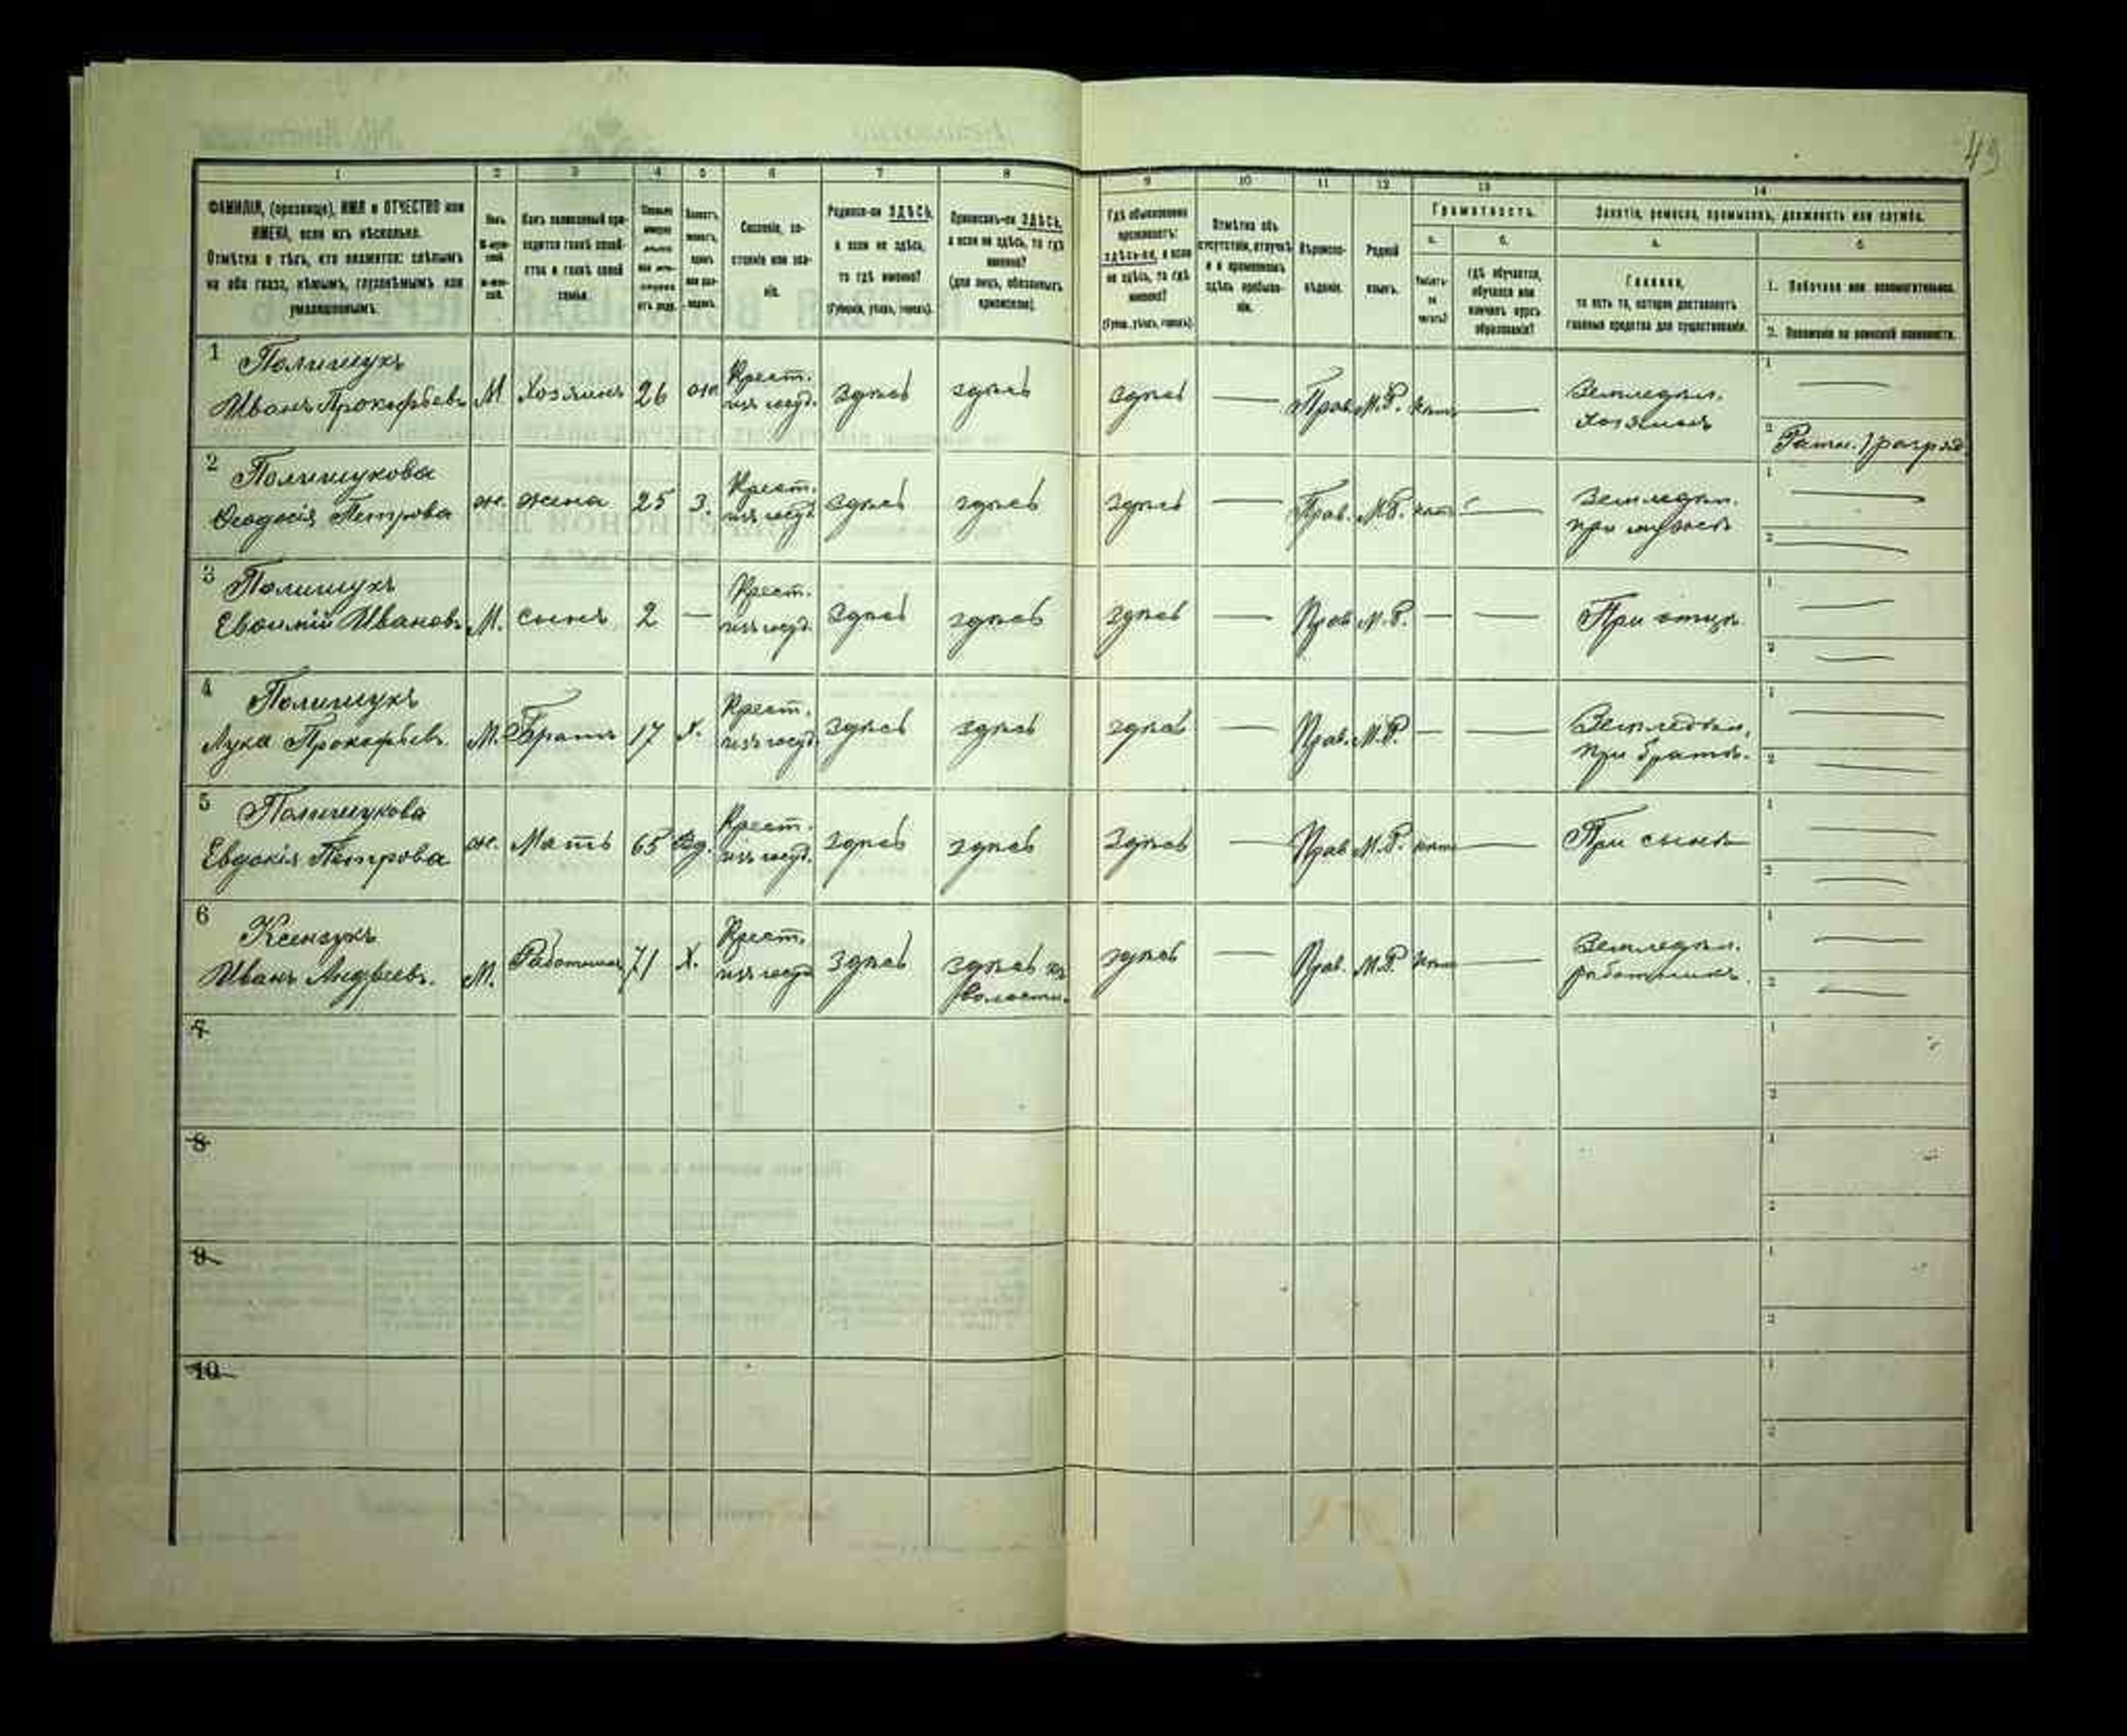 49
1 2 3 4 5 6 7 8 9 10 11 12 13 14
ФАМИЛІЯ, (прозвище), ИМЯ и ОТЧЕСТВО или
ИМЕНА, если ихъ нѣсколько.
Отмѣтка о тѣхъ, кто окажется: слѣпымъ
на оба глаза, нѣмымъ, глухонѣмымъ или
умалишеннымъ.
Сословіе, со-
стояніе или зва-
ніе.
Родился-ли ЗДѢСЬ,
а если не здѣсь,
то гдѣ именно?
(Губернія, уѣздъ, городъ).
Приписанъ-ли ЗДѢСЬ,
а если не здѣсь, то гдѣ
именно?
(для лицъ, обязанныхъ
припискою).
Гдѣ обыкновенно
проживаетъ:
здѣсь-ли, а если
не здѣсь, то гдѣ
именно?
(Губер., уѣздъ, городъ).
Отмѣтка объ
отсутствіи, отлучкѣ
и о временномъ
здѣсь пребыва-
ніи.
Вѣроиспо-
вѣданіе.
Родной
языкъ.
Грамотность.
а. б.
Умѣетъ-
ли
читать?
гдѣ обучается,
обучался или
кончилъ курсъ
образованія?
Занятіе, ремесло, промыселъ, должность или служба.
а. б.
Главное,
то есть то, которое доставляетъ
главныя средства для существованія.
1. Побочное или вспомогательное.
2. Положеніе по воинской повинности.
1 Полищукъ
Иванъ Прокофьевъ М Хозяинъ 26 Крест. здѣсь здѣсь здѣсь — Прав. М.Р. — Земледѣл. хозяинъ
1 —
2 Ратн. 1 разряд
2 Полищукова
Ѳеодосія Петрова ж. жена 25 З. Крест. здѣсь здѣсь здѣсь — Прав. М.Р. — Земледѣл. при мужѣ
1 —
2 —
3 Полищукъ
Евѳимій Ивановъ М. сынъ 2 — Крест. здѣсь здѣсь здѣсь — Прав М.Р. — — При отцѣ
1 —
2 —
4 Полищукъ
Лука Прокофьевъ М. Братъ 17 Х. Крест. здѣсь здѣсь здѣсь — Прав. М.Р. — — Земледѣл. при братѣ.
1 —
2 —
5 Полищукова
Евдокія Петрова ж. Мать 65 Вд. Крест. здѣсь здѣсь здѣсь — Прав М.Р. — При сынѣ
1 —
2 —
6 Ксензукъ
Иванъ Андреевъ. М. Работникъ 71 Х. Крест. здѣсь здѣсь волости. здѣсь — Прав. М.Р. — Земледѣл. работникъ.
1 —
2 —
7
1
2
8
1
2
9
1
2
10
1
2